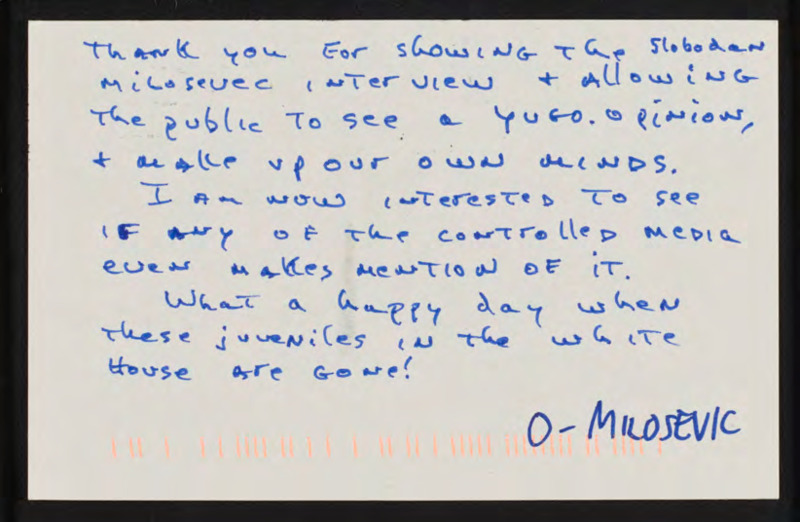 Thank you For showing The Slobodan
Milosevec interview + Allowing
The public To see a Yugo. opinion,
+ make up our own minds.
I am now interested To see
if any of the controlled media
even makes mention of it.
What a happy day when
these juveniles in the white
House are gone!
O- MILOSEVIC